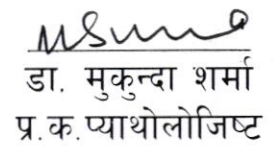 डा. मुकुन्दा शर्मा
प्र.क.प्याथोलोजिष्ट